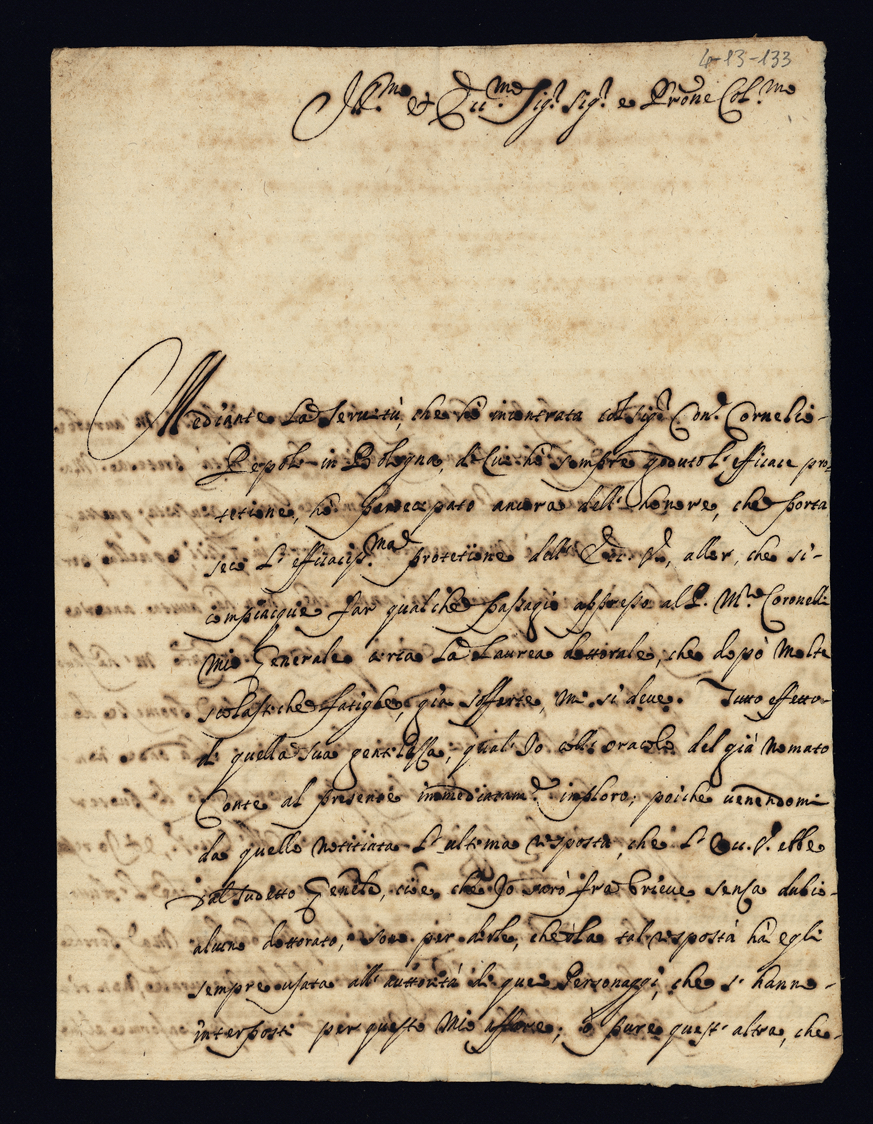 4-13-133
Ill.mo et Ecc.mo Sig.r Sig.r e Prone Col.mo
Mediante la servitù, che hò incontrata col sig.r Con.e Cornelio
Pepoli in Bologna, di cui hò sempre goduto l'efficace pro-
tetione, hò partecipato ancora dell'honore, che porta
seco l'efficaciss.ma protetione dell'Ecc. V., allor, che si
compiacque far qualche passagio appresso al P. M.ro Coronelli
mio Generale circa la Laurea dottorale, che dopò molte
scolastiche fatighe, già sofferte, mi si deve. Tutto effetto
di quella sua gentilezza, qual'Io coll'oracolo del già nomato
Conte al presente immediatam.te imploro; poiche venendomi
da quello notitiata l'ultima risposta, che l'Ecc. V. ebbe
dal sudetto Gen.le, cioè, che Io sarò fra brieve senza dubio
alcuno dottorato, son per dirle, che ò la tal risposta hà egli
sempre usata all'auttorità di que' Personaggi, che s'hanno
interposti per questo mio affare; ò pure quest'altra, che